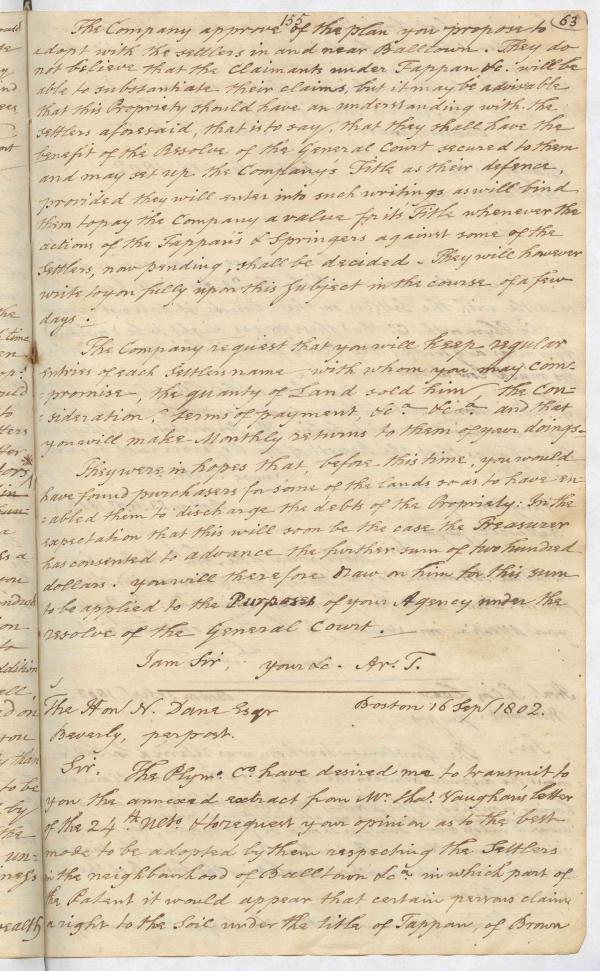 155
63
The Company approve of the plan you propose to
adopt with the settlers in and near Balltown. They do
not believe that the Claimants under Tappan &c. will be
able to substantiate their claims, but it may be adviseable
that this Propriety should have an understanding with the
settlers aforesaid, that is to say, that they shall have the
benefit of the Resolve of the General Court secured to them
and may set up the Company's Title as their defence,
provided they will enter into such writings as will bind
them to pay the Company a value for its Title whenever the
actions of the Tappan's & Springers against some of the
Settlers, now pending, shall be decided. They will however
write to you fully upon this subject in the course of a few
days.
The Company request that you will keep regular
entries of each settlers name with whom you may com-
-promise, the quanty of Land sold him, the con-
-sideration, terms of payment, &ca. &ca. and that
you will make Monthly returns to them of your doings.
They were in hopes that, before this time, you would
have found purchasers for some of the lands so as to have en-
-abled them to discharge the debts of the Propriety: In the
expectation that this will soon be the case the Treasurer
has consented to advance the further sum of two hundred
dollars. you will therefore draw on him for this sum
to be applied to the Purposes of your Agency under the
resolve of the General Court.
I am Sir, your &c. Ar. T.
The Honl N. Dane Esqr Boston 16 Sepr 1802.
Beverly, per post.
Sir. The Plymo. Co. have desired me to transmit to
you the annexed extract from Mr. Chas. Vaughan's letter
of the 24th Ulto. & to request your opinion as to the best
mode to be adopted by them respecting the Settlers
in the neighbourhood of Balltown &ca in which part of
the Patent it would appear that certain persons claim
a right to the Soil under the title of Tappan, of Brown